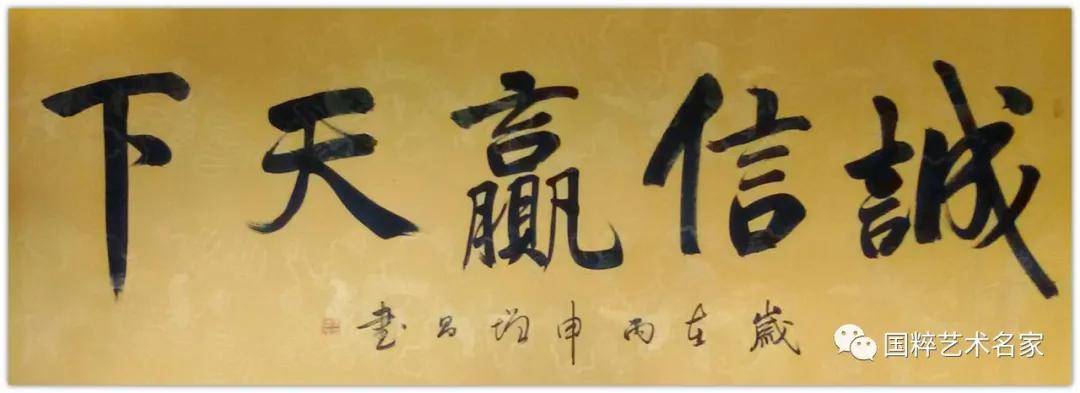 誠信贏天下
歲在丙申增昌書
国粹艺术名家